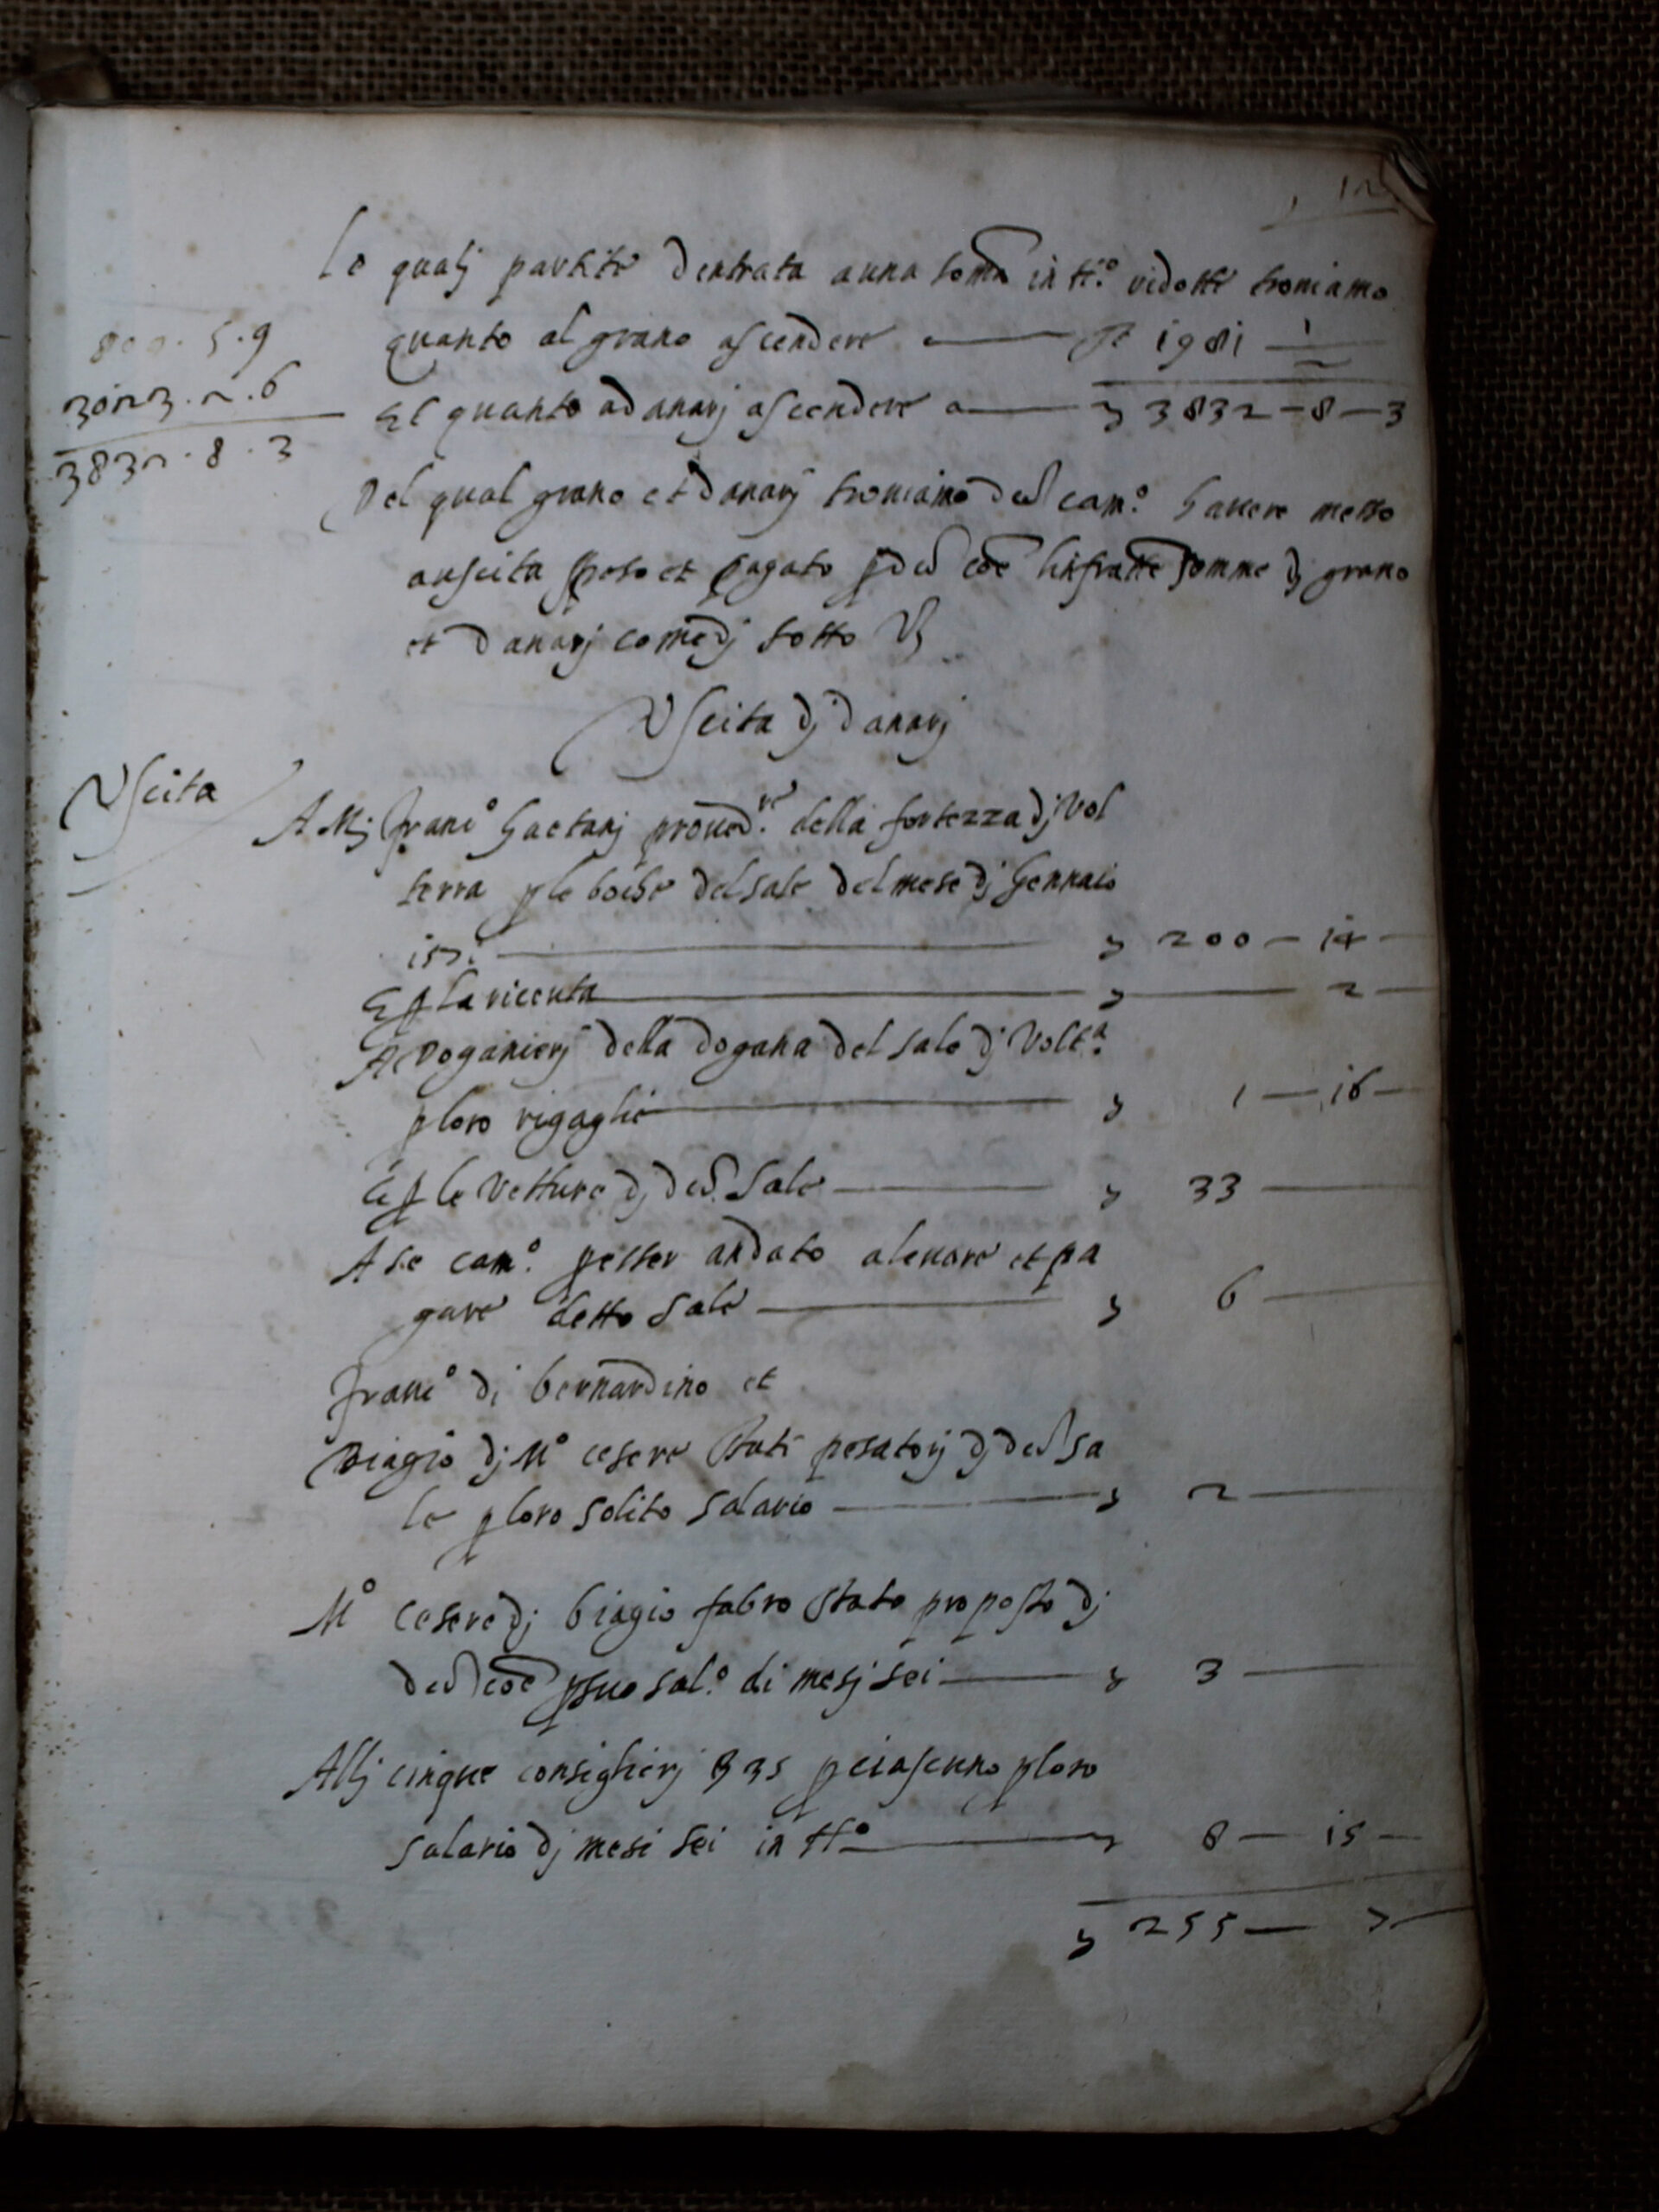 12
Le qualj partite dentrata auna somma in tt.o ridotte trouiamo
quanto al grano ascendere a — st 1981 ½
Et quanto a danarj ascendere a — 3832 – 8 – 3
809 . 5 . 9
3023 . 2 . 6
3832 . 8 . 3
Del qual grano et danarj trouiamo detto cam.o hauere messo
auscita speso et pagato p detto coe linfratte somme dj grano
et danarj come dj sotto Vz
Vscita dj danarj
Vscita
A Mj franc.o Gaetanj proued.re della fortezza dj Vol
terra p le boche del sale del mese dj Gennaio
157i — 200 – 14 –
E p la riceuta — 2 –
A Doganierj della dogana del sale dj Volt.a
p loro rigaglie — 1 – 16 –
E p le Vetture dj detto Sale — 33 –
A se cam.o p esser andato aleuare et pa
gare detto sale — 6 –
franc.o di bernardino et
Biagio dj M.o cesere stati pesatorj dj detto sa
le p loro solito salario — 2 –
M.o Cesere dj biagio fabro stato proposto dj
detto coe p suo sal.o di mesj sei — 3 –
Allj cinque consiglierj 35 p ciascuno p loro
salario dj mesi sei in tt.o — 8 – 15 –
255 – 7 –